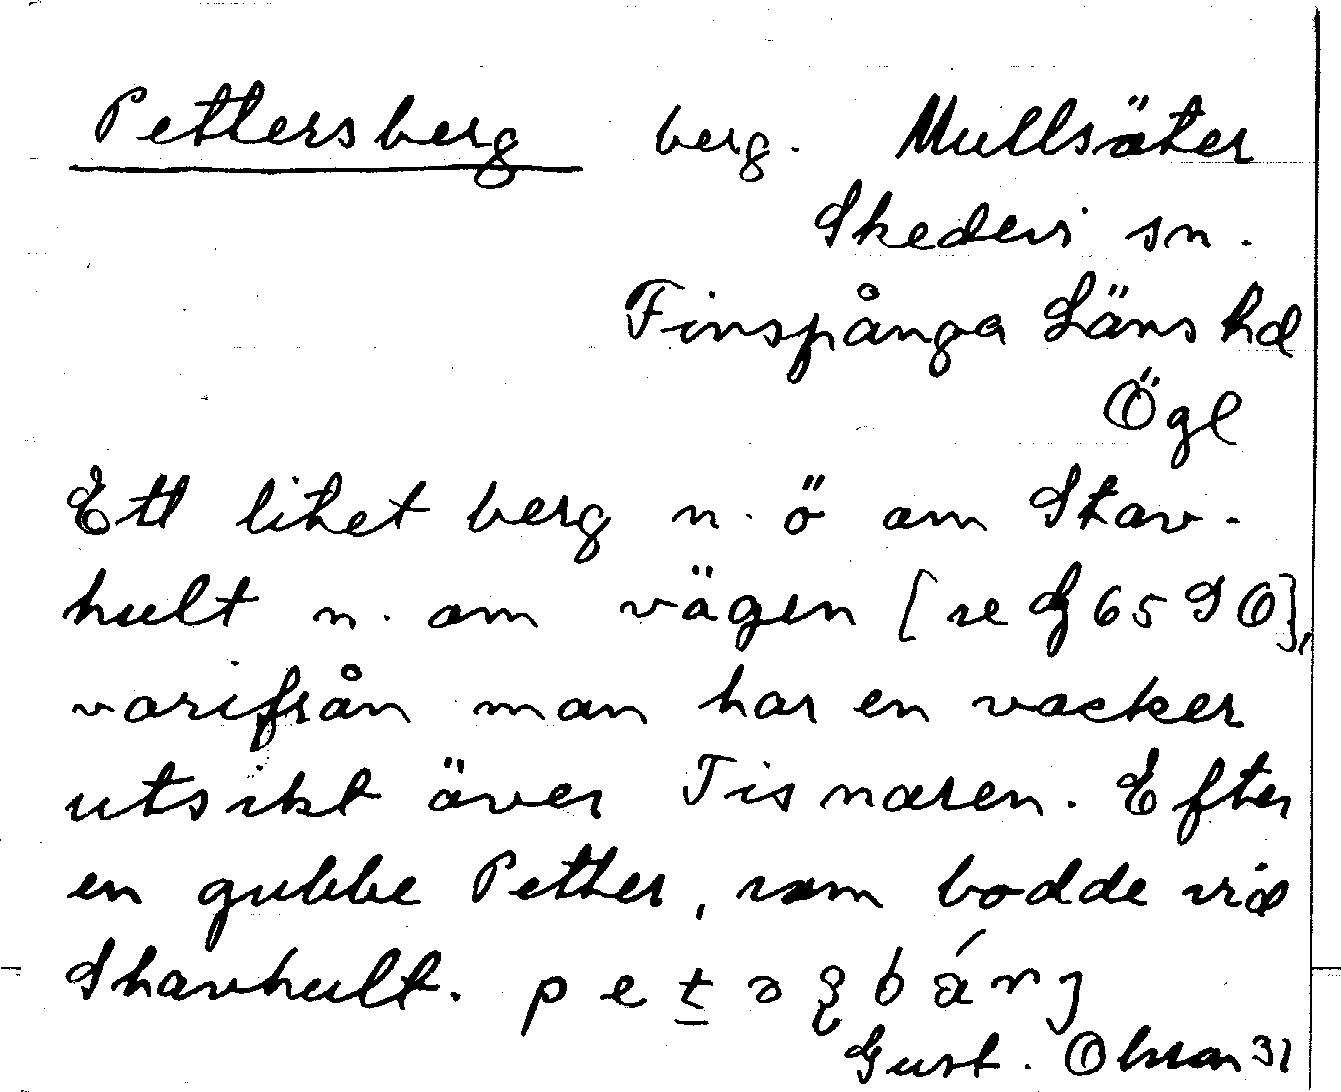 Pettersberg berg. Mullsäter
Skedevi sn.
Finspånga Läns hd
Ögl
Ett litet berg n. ö om Stav-
hult n. om vägen [se G 65 90],
varifrån man har en vacker
utsikt över Tisnaren. Efter
en gubbe Petter, som bodde vid
Stavhult.
Gust. Olsson 31